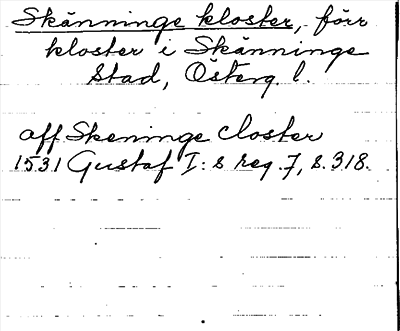 Skänninge kloster, förr
kloster i Skänninge
stad, Österg. l.
aff Skeninge closter
1531 Gustaf I:s reg. 7, s. 318.